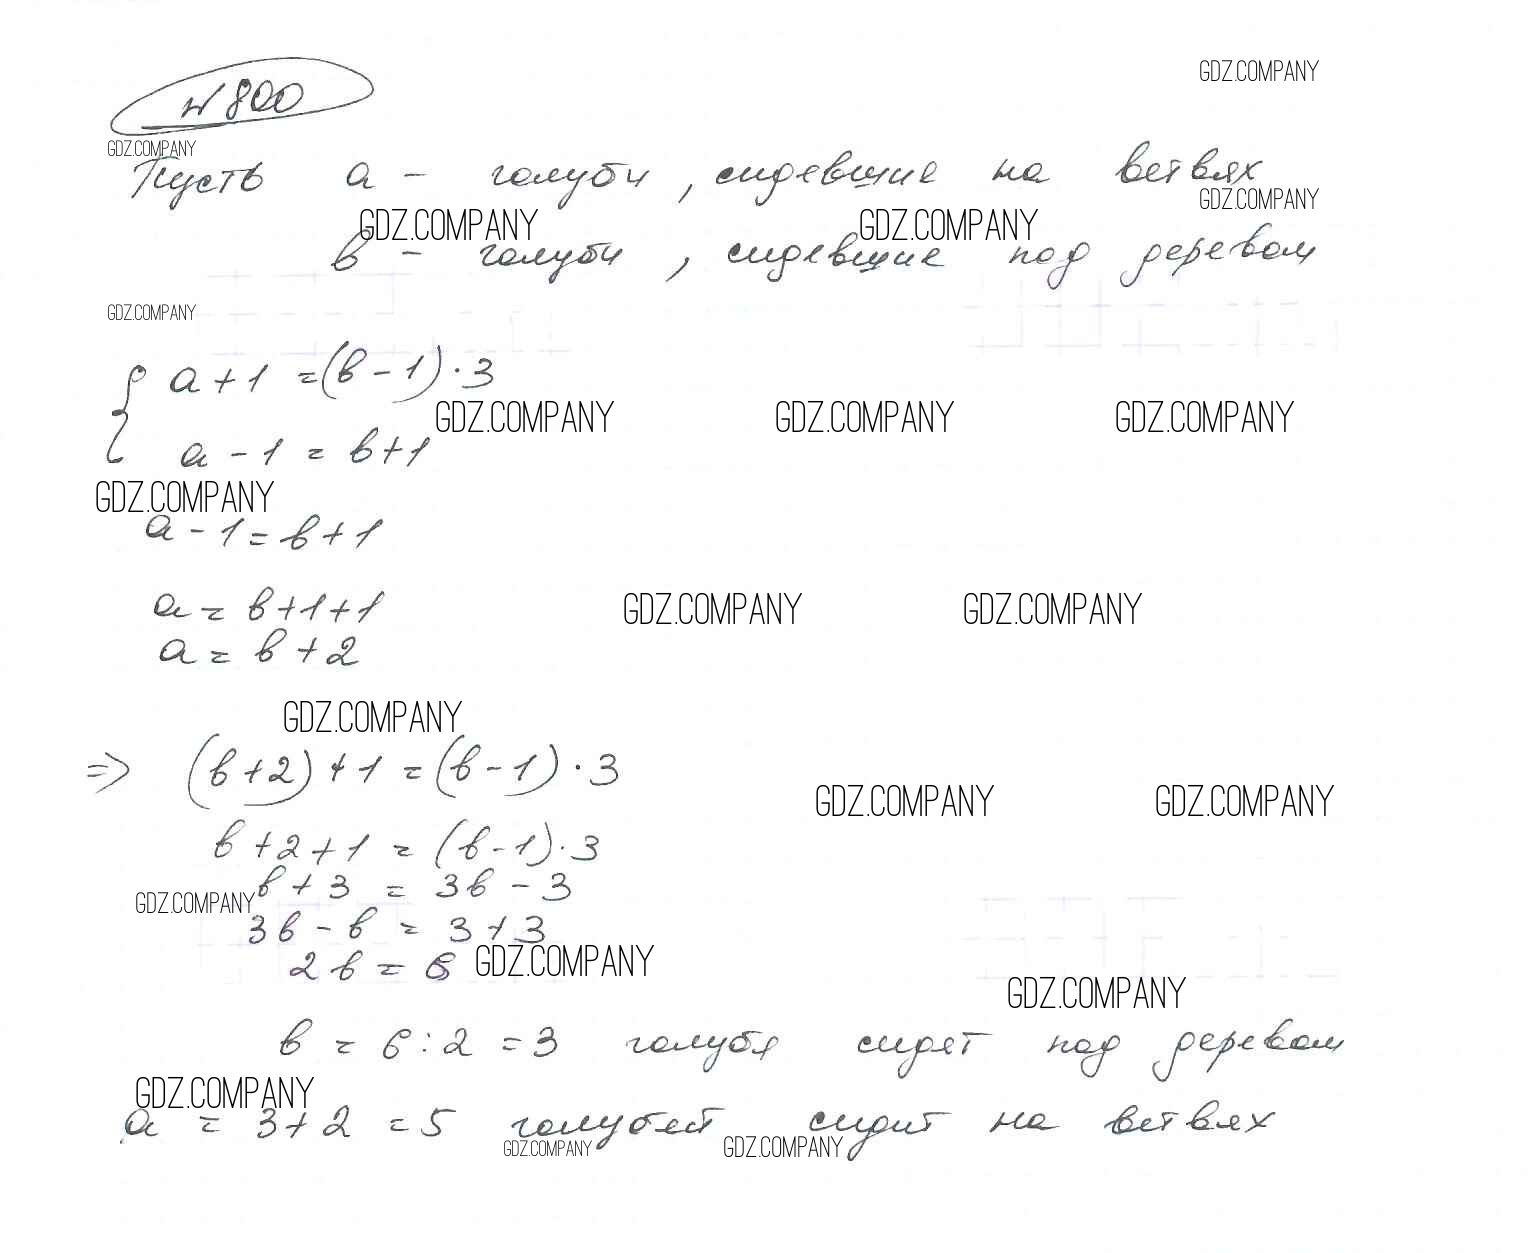 GDZ.COMPANY
№ 800
GDZ.COMPANY
Пусть а - голуби, сидевшие на ветвях
GDZ.COMPANY
GDZ.COMPANY GDZ.COMPANY
в - голуби, сидевшие под деревом
GDZ.COMPANY
{ а + 1 = (в - 1) · 3
GDZ.COMPANY GDZ.COMPANY GDZ.COMPANY
а - 1 = в + 1
GDZ.COMPANY
а - 1 = в + 1
а = в + 1 + 1
GDZ.COMPANY GDZ.COMPANY
а = в + 2
GDZ.COMPANY
=> (в + 2) + 1 = (в - 1) · 3
GDZ.COMPANY GDZ.COMPANY
в + 2 + 1 = (в - 1) · 3
в + 3 = 3в - 3
GDZ.COMPANY
3в - в = 3 + 3
2в = 6
GDZ.COMPANY
GDZ.COMPANY
в = 6 : 2 = 3 голубя сидят под деревом
GDZ.COMPANY
а = 3 + 2 = 5 голубей сидит на ветвях
GDZ.COMPANY GDZ.COMPANY